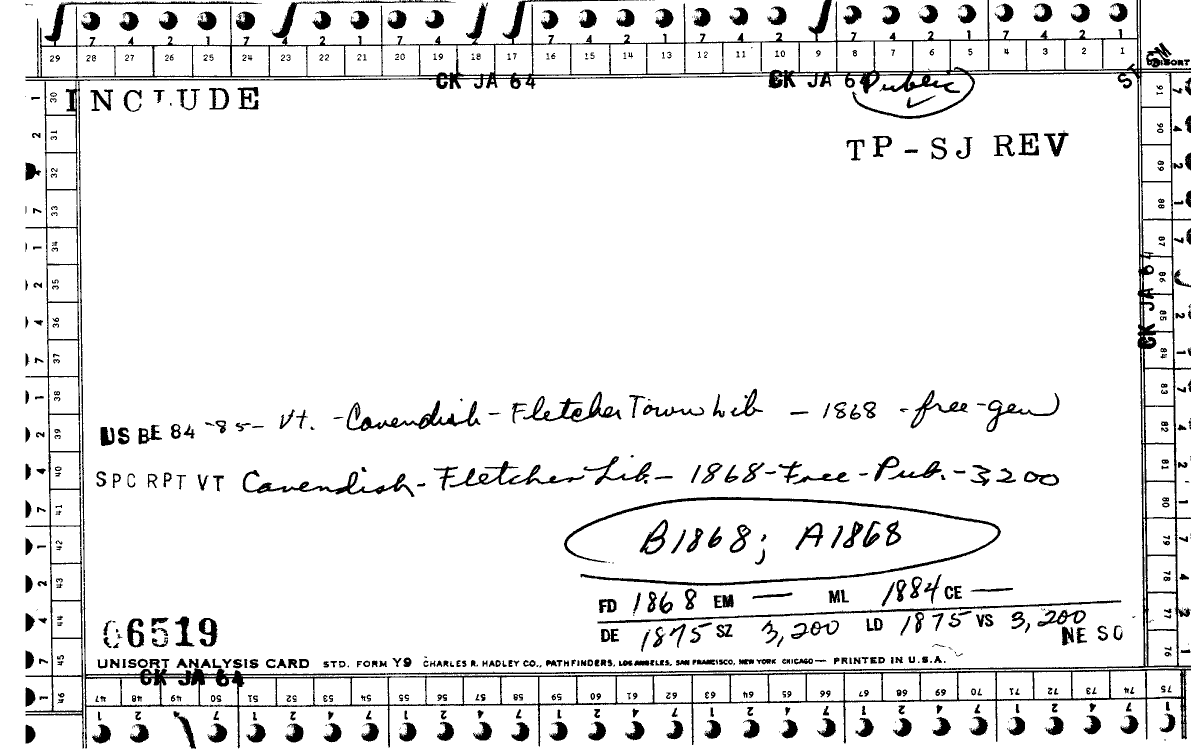 7 4 2 1 7 4 2 1 7 4 2 1 7 4 2 1 7 4 2 1 7 4 2 1
29 28 27 26 25 24 23 22 21 20 19 18 17 16 15 14 13 12 11 10 9 8 7 6 5 4 3 2 1
CK JA 64 CK JA 64 Public
INCLUDE
TP-SJ REV
CK JA 64
US BE 84-85- Vt. - Cavendish - Fletcher Town Lib - 1868 - free-gen
SPC RPT VT Cavendish - Fletcher Lib. - 1868 - Free - Pub. - 3,200
B1868; A1868
FD 1868 EM — ML 1884 CE —
DE 1875 SZ 3,200 LD 1875 VS 3,200
NE SO
06519
UNISORT ANALYSIS CARD STD. FORM Y9 CHARLES R. HADLEY CO., PATHFINDERS, LOS ANGELES, SAN FRANCISCO, NEW YORK CHICAGO — PRINTED IN U.S.A.
CK JA 64
30 31 32 33 34 35 36 37 38 39 40 41 42 43 44 45 46
47 48 49 50 51 52 53 54 55 56 57 58 59 60 61 62 63 64 65 66 67 68 69 70 71 72 73 74 75
76 77 78 79 80 81 82 83 84 85 86 87 88 89 90 91